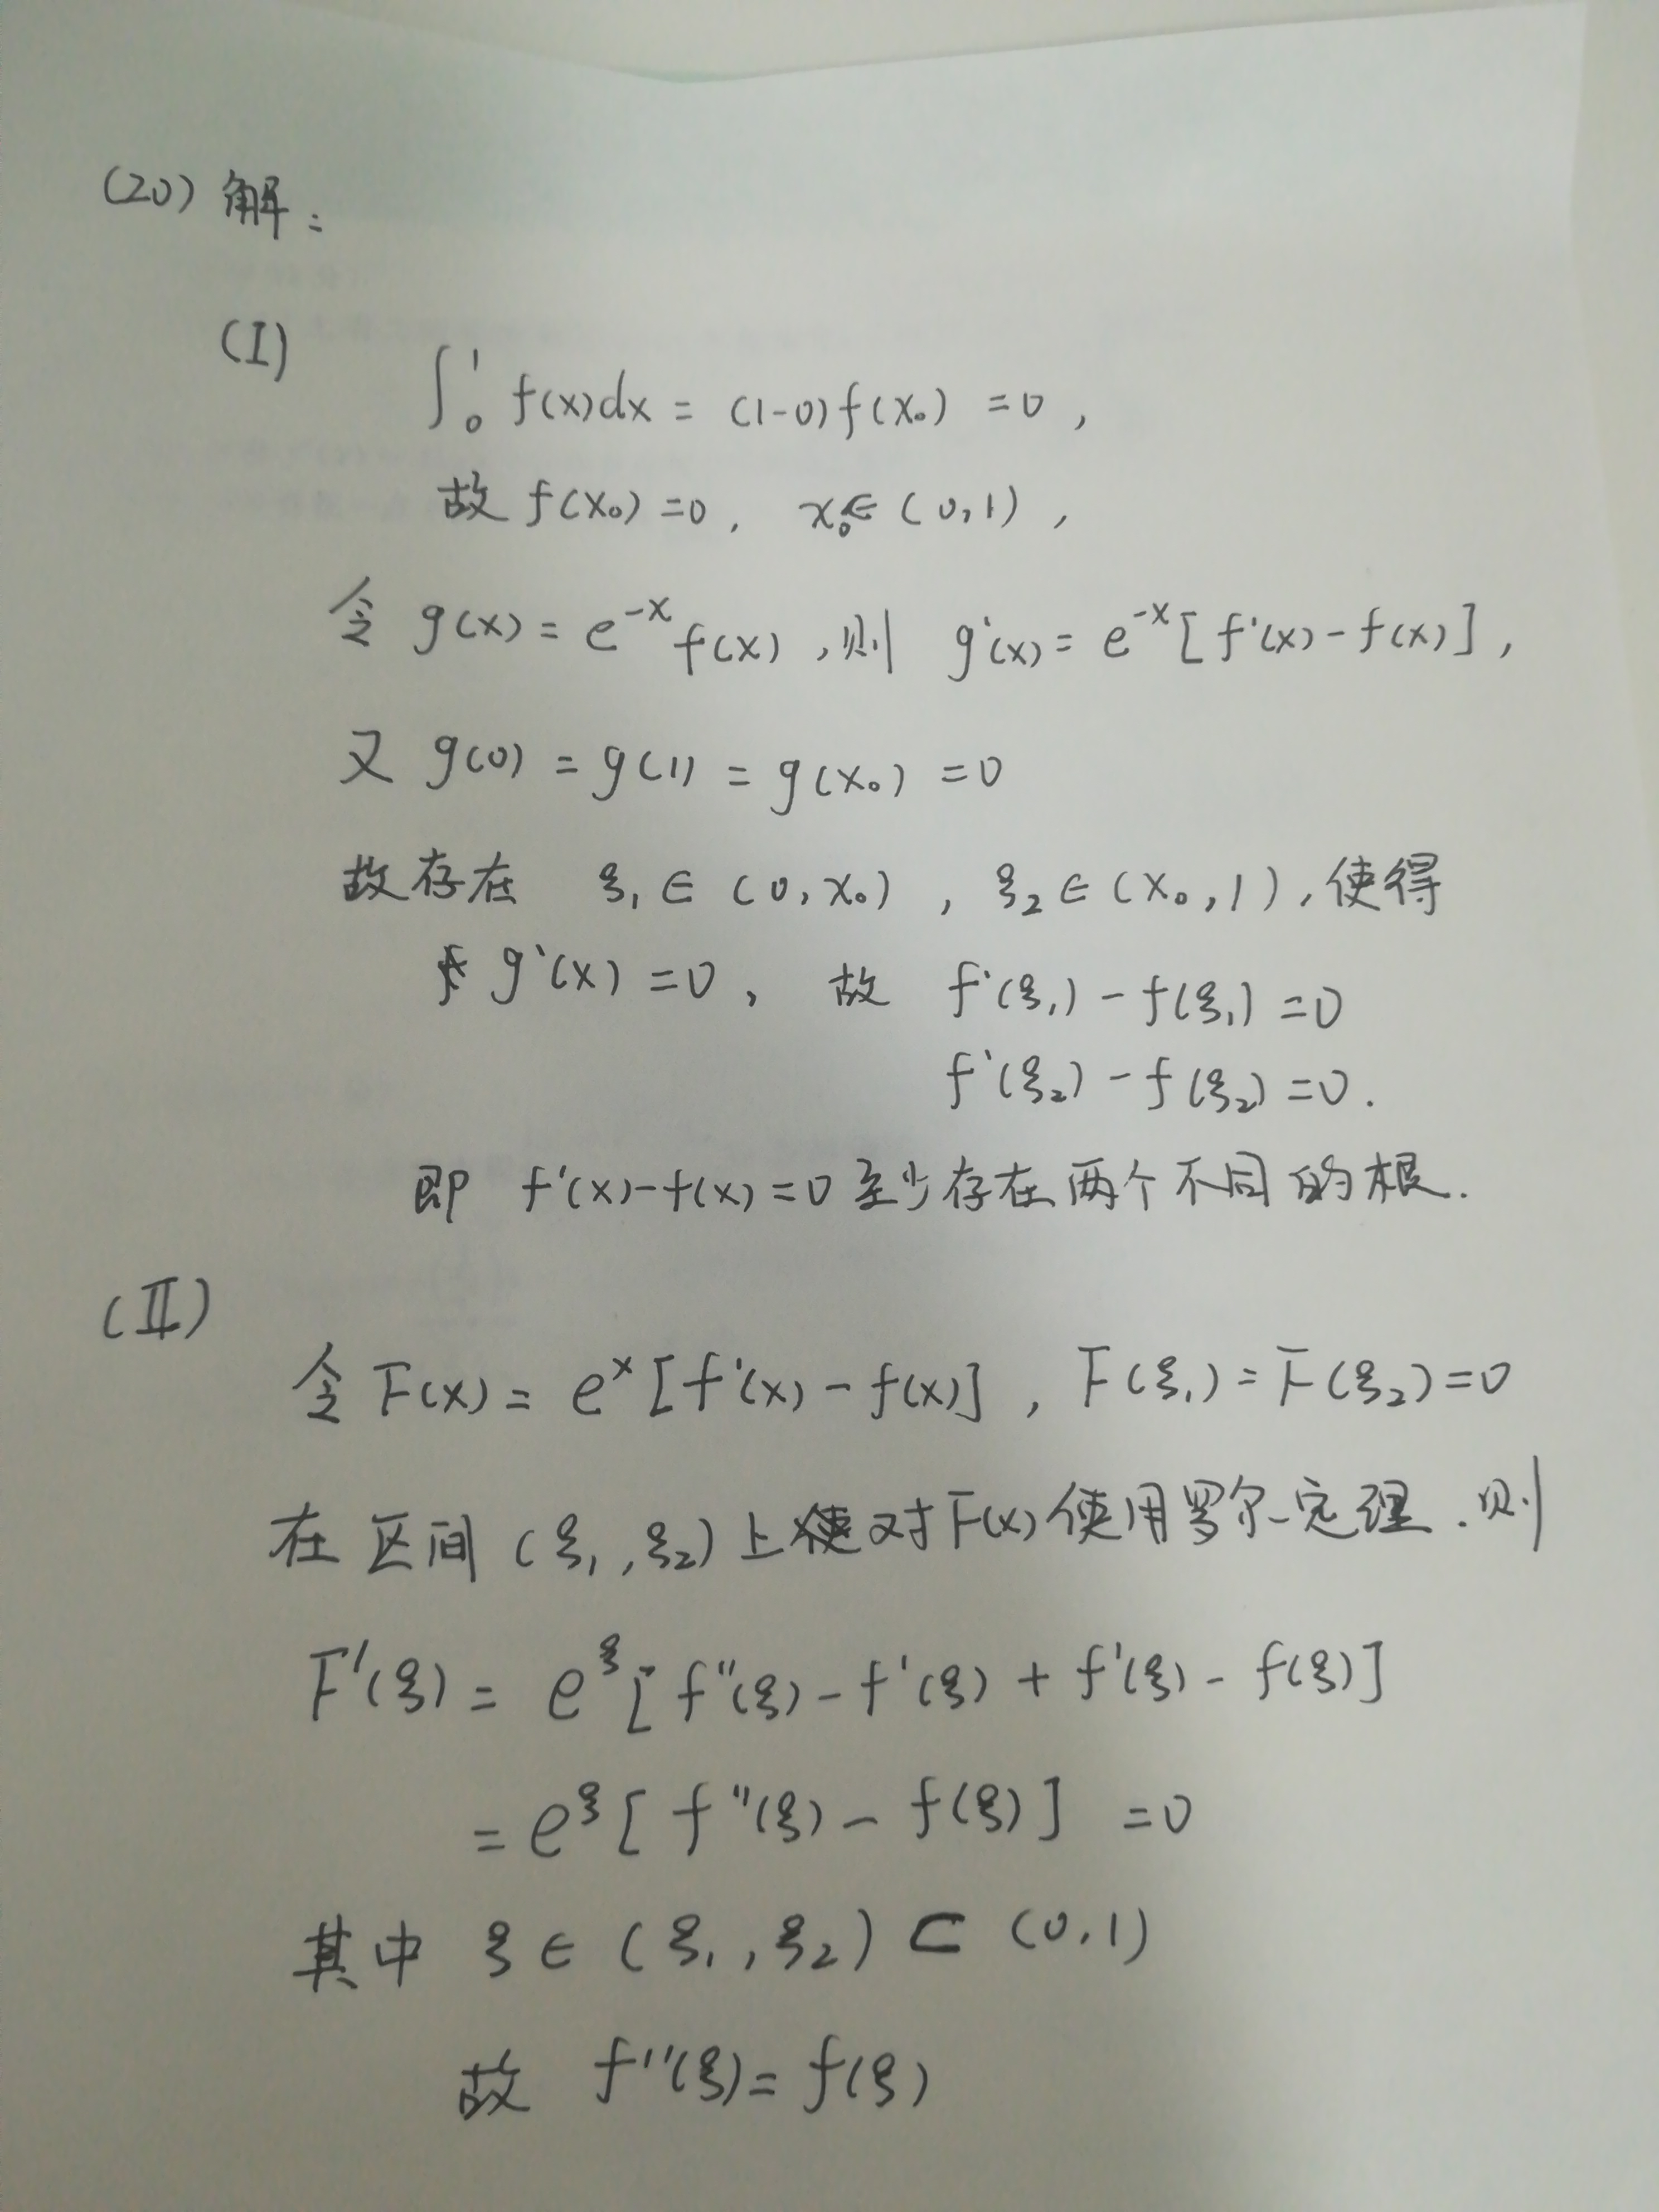 (20) 解:
(I)
∫₀¹ f(x)dx = (1-0)f(x₀) = 0,
故 f(x₀) = 0, x₀∈(0,1),
令 g(x) = e⁻ˣ f(x), 则 g'(x) = e⁻ˣ[f'(x) - f(x)],
又 g(0) = g(1) = g(x₀) = 0
故存在 ξ₁∈(0,x₀), ξ₂∈(x₀,1), 使得
g'(x) = 0, 故 f'(ξ₁) - f(ξ₁) = 0
f'(ξ₂) - f(ξ₂) = 0.
即 f'(x) - f(x) = 0 至少存在两个不同的根.
(II)
令 F(x) = eˣ[f'(x) - f(x)], F(ξ₁) = F(ξ₂) = 0
在区间 (ξ₁, ξ₂) 上对 F(x) 使用罗尔定理. 则
F'(ξ) = e^ξ[f''(ξ) - f'(ξ) + f'(ξ) - f(ξ)]
= e^ξ[f''(ξ) - f(ξ)] = 0
其中 ξ∈(ξ₁, ξ₂) ⊂ (0,1)
故 f''(ξ) = f(ξ)